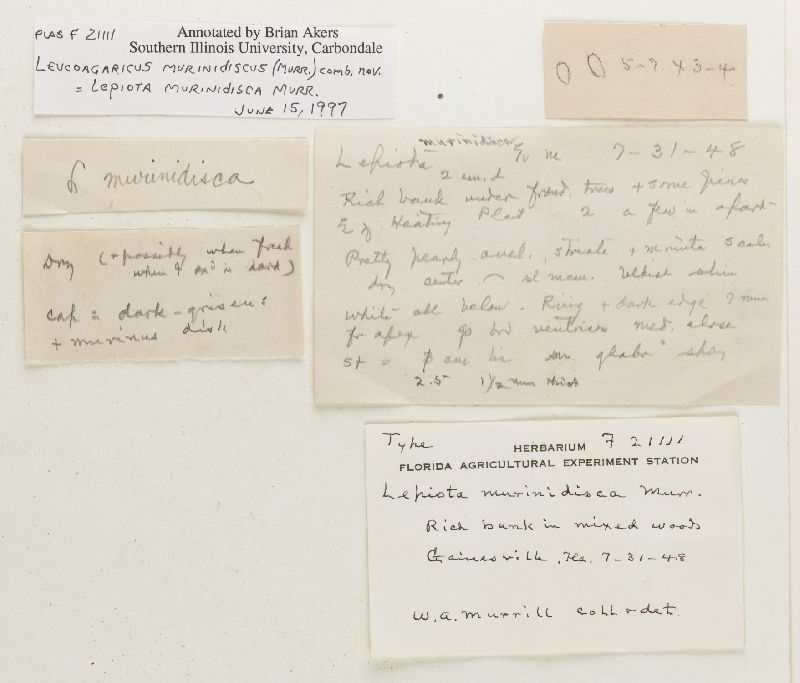 PLAS F 21111
Annotated by Brian Akers
Southern Illinois University, Carbondale
LEUCOAGARICUS MURINIDISCUS (MURR.) comb. nov.
= LEPIOTA MURINIDISCA MURR.
JUNE 15, 1997
5-7 x 3-4
L murinidisca
Dry (+ possibly when fresh
when in dark)
cap = dark-griseus
+ murinus disk
murinidisca
Lepiota 7-31-48
2 cm. d
Rich bank under frond. trees + some pines
E of Heating Plant 2 a few in apart
Pretty pearly avel., striate + minute scales
dry center
white all below. Ring + dark edge 7 mm
fr apex ventricose med. close
st = glabr
2.5 1 1/2 mm thick
Type
HERBARIUM F 21111
FLORIDA AGRICULTURAL EXPERIMENT STATION
Lepiota murinidisca Murr.
Rich bank in mixed woods
Gainesville, Fla. 7-31-48
W.A. Murrill coll + det.